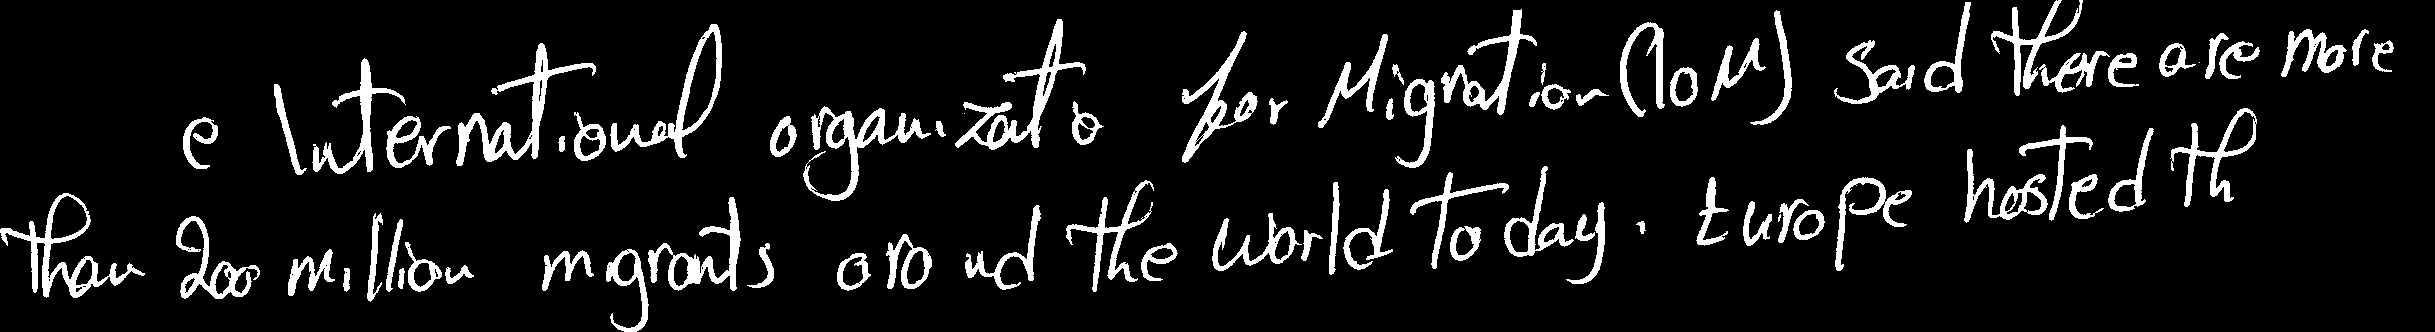 e International organizatio for Migration (IOM) said there are more
than 200 million migrants arond the world today. Europe hosted th